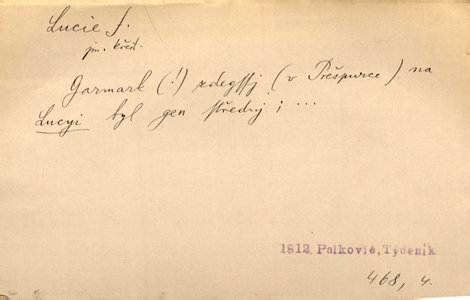 Lucie f.
jm. křest.
Garmark (!) zdegssj (v Prešpurce) na
Lucyi byl gen střednj i ...
1812 Palkovič, Týdeník
468, 4.